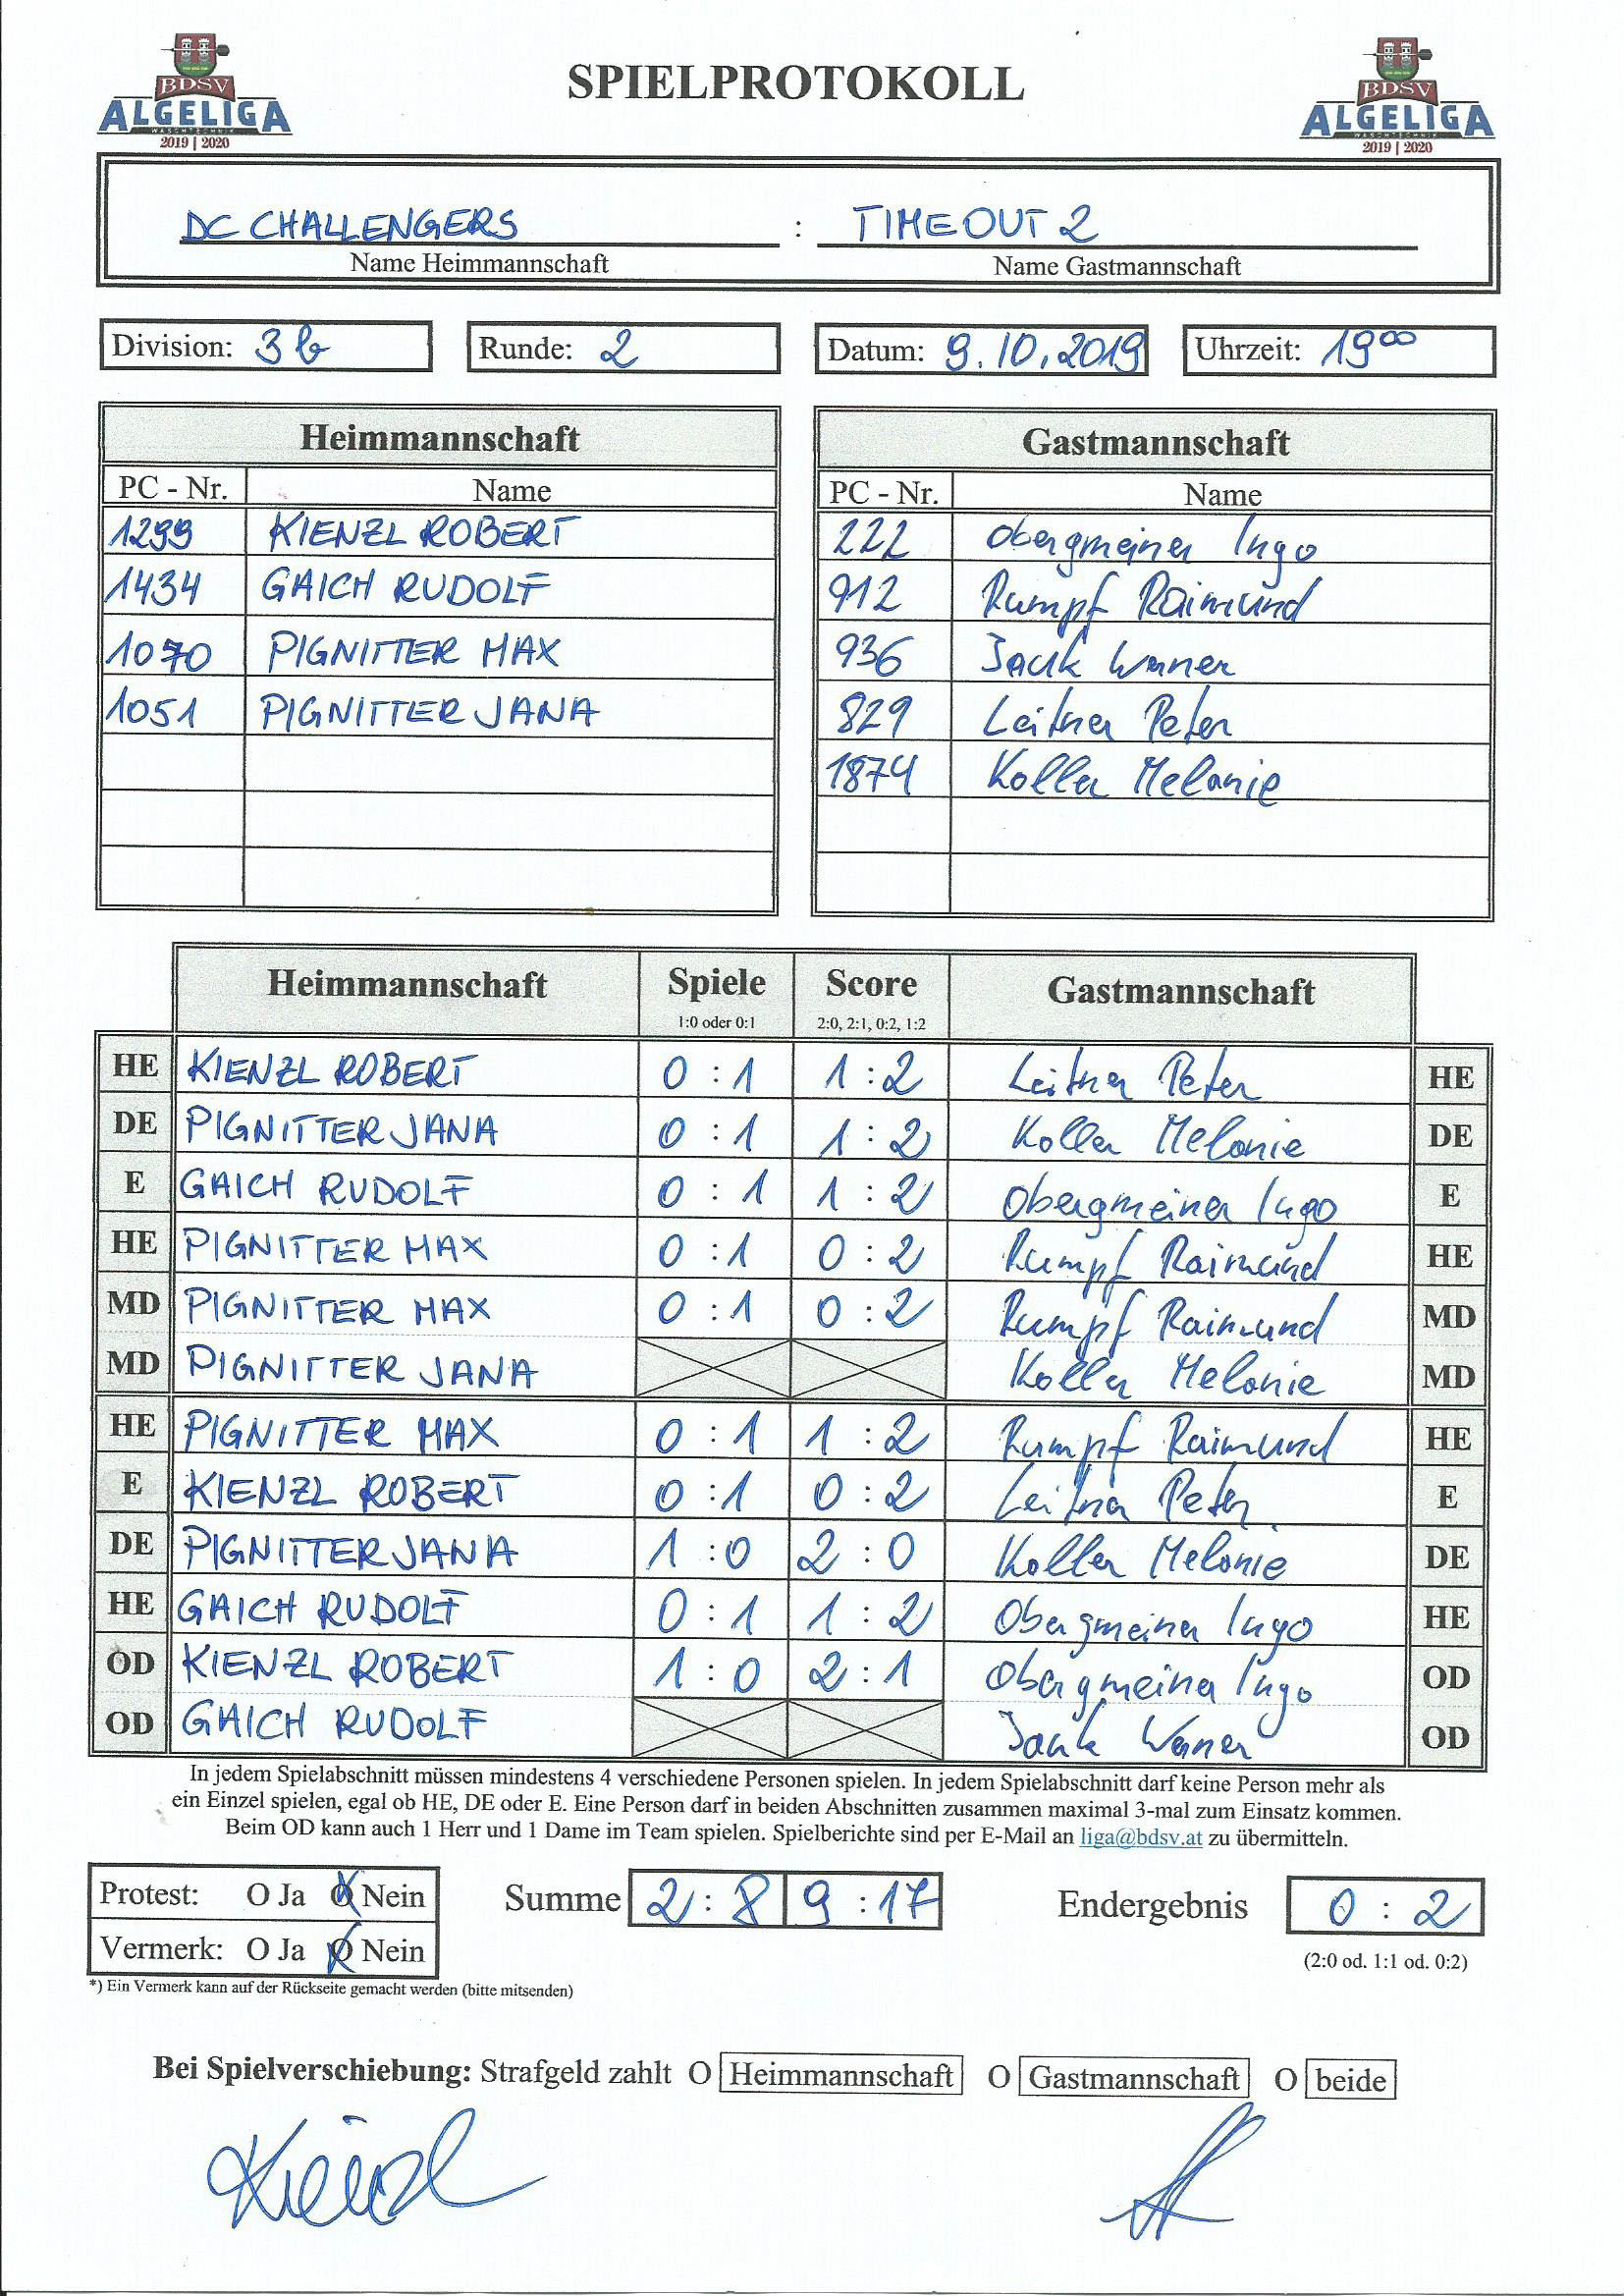 BDSV
ALGELIGA
WASCHTECHNIK
2019 | 2020
SPIELPROTOKOLL
BDSV
ALGELIGA
WASCHTECHNIK
2019 | 2020
DC CHALLENGERS : TIMEOUT 2
Name Heimmannschaft Name Gastmannschaft
Division: 3b Runde: 2 Datum: 9.10.2019 Uhrzeit: 19⁰⁰
Heimmannschaft
PC - Nr. Name
1299 KIENZL ROBERT
1434 GAICH RUDOLF
1070 PIGNITTER MAX
1051 PIGNITTER JANA
Gastmannschaft
PC - Nr. Name
222 Obergmeiner Ingo
912 Rumpf Raimund
936 Jauk Werner
829 Leitner Peter
1874 Koller Melanie
Heimmannschaft Spiele Score Gastmannschaft
1:0 oder 0:1 2:0, 2:1, 0:2, 1:2
HE KIENZL ROBERT 0 : 1 1 : 2 Leitner Peter HE
DE PIGNITTER JANA 0 : 1 1 : 2 Koller Melanie DE
E GAICH RUDOLF 0 : 1 1 : 2 Obergmeiner Ingo E
HE PIGNITTER MAX 0 : 1 0 : 2 Rumpf Raimund HE
MD PIGNITTER MAX 0 : 1 0 : 2 Rumpf Raimund MD
MD PIGNITTER JANA Koller Melanie MD
HE PIGNITTER MAX 0 : 1 1 : 2 Rumpf Raimund HE
E KIENZL ROBERT 0 : 1 0 : 2 Leitner Peter E
DE PIGNITTER JANA 1 : 0 2 : 0 Koller Melanie DE
HE GAICH RUDOLF 0 : 1 1 : 2 Obergmeiner Ingo HE
OD KIENZL ROBERT 1 : 0 2 : 1 Obergmeiner Ingo OD
OD GAICH RUDOLF Jauk Werner OD
In jedem Spielabschnitt müssen mindestens 4 verschiedene Personen spielen. In jedem Spielabschnitt darf keine Person mehr als
ein Einzel spielen, egal ob HE, DE oder E. Eine Person darf in beiden Abschnitten zusammen maximal 3-mal zum Einsatz kommen.
Beim OD kann auch 1 Herr und 1 Dame im Team spielen. Spielberichte sind per E-Mail an liga@bdsv.at zu übermitteln.
Protest: O Ja O Nein Summe 2 : 8 9 : 17 Endergebnis 0 : 2
Vermerk: O Ja O Nein (2:0 od. 1:1 od. 0:2)
*) Ein Vermerk kann auf der Rückseite gemacht werden (bitte mitsenden)
Bei Spielverschiebung: Strafgeld zahlt O Heimmannschaft O Gastmannschaft O beide
Kienzl